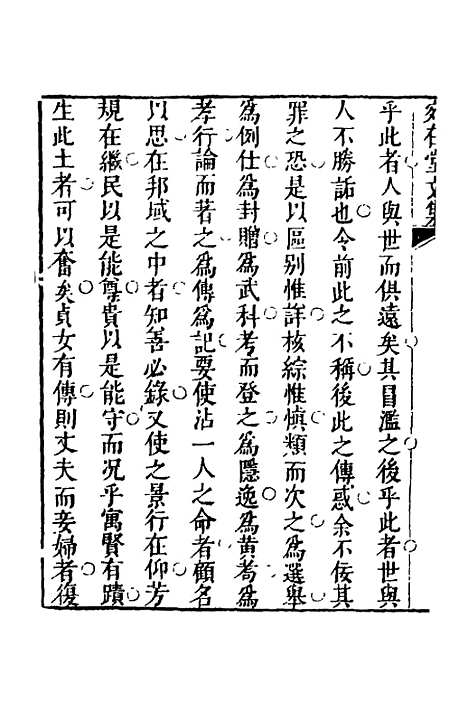 宛在堂文集
乎此者人與世而俱遠矣其冒濫之後乎此者世與
人不勝詬也令前此之不稱後此之傳惑余不佞其
罪之恐是以區别惟詳核綜惟慎類而次之為選舉
為例仕為封贈為武科考而登之為隱逸為黄耇為
孝行論而著之為傳為記要使沾一人之命者顧名
以思在邦域之中者知善必錄又使之景行在仰芳
規在繼民以是能尊貴以是能守而况乎寓賢有蹟
生此土者可以奮矣貞女有傳則丈夫而妾婦者復